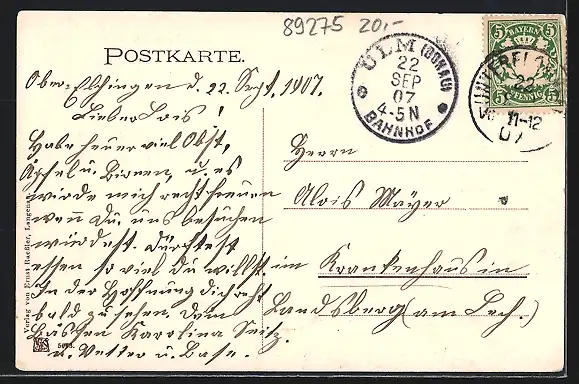 89275 20,-
POSTKARTE.
ULM (DONAU)
22
SEP
07
4-5 N
BAHNHOF
BAYERN
5 5
5 PFENNIG 5
22
11-12
07
Ober-Elchingen d. 22. Sept. 1907.
Lieber Lois!
Habe heuer viel Obst,
Äpfel u. Birnen, u. es
würde mich recht freuen
wenn Du uns besuchen
würdest. Dürftest
essen so viel du willst.
In der Hoffnung dich recht
bald zu sehen. Dein
Karolina Seitz.
u. Vetter u. Base.
Herrn
Alois Mayer
im Krankenhaus in
Landsberg (am Lech.)
Verlag von Ernst
5073.